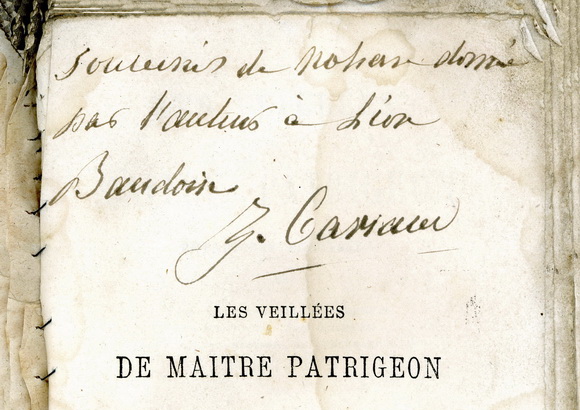 souvenirs de nohan donné
par l'auteur à Léon
Baudoin
LES VEILLÉES
DE MAITRE PATRIGEON